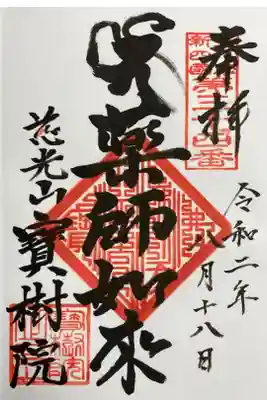 奉拝
令和二年
八月十八日
薬師如来
慈光山
寶樹院